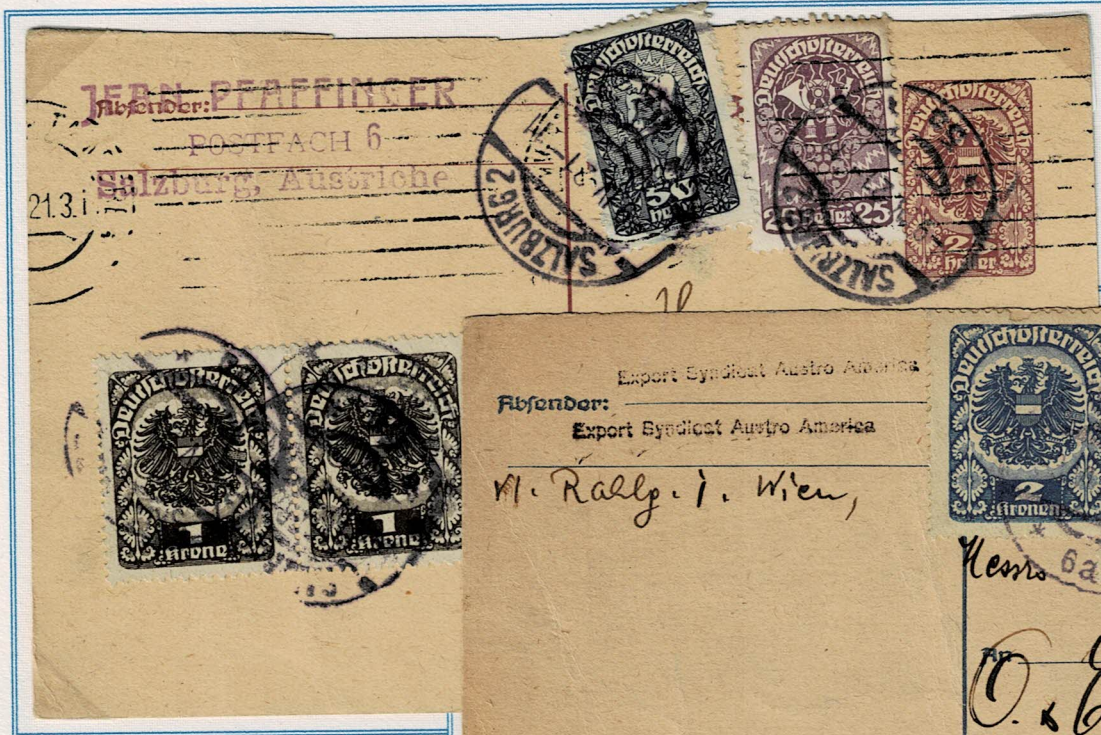 JEAN PFAFFINGER
Absender:
POSTFACH 6
Salzburg, Austriche
21.3.
SALZBURG 2
Deutschösterreich
50
heller
Deutschösterreich
25 heller 25
SALZBURG 2
Deutschösterreich
heller
Deutschösterreich
1
Krone
Deutschösterreich
1
Krone
Export Syndicat Austro America
Absender:
Export Syndicat Austro America
Wien,
Deutschösterreich
2
Kronen
6a
Messrs
An
O.